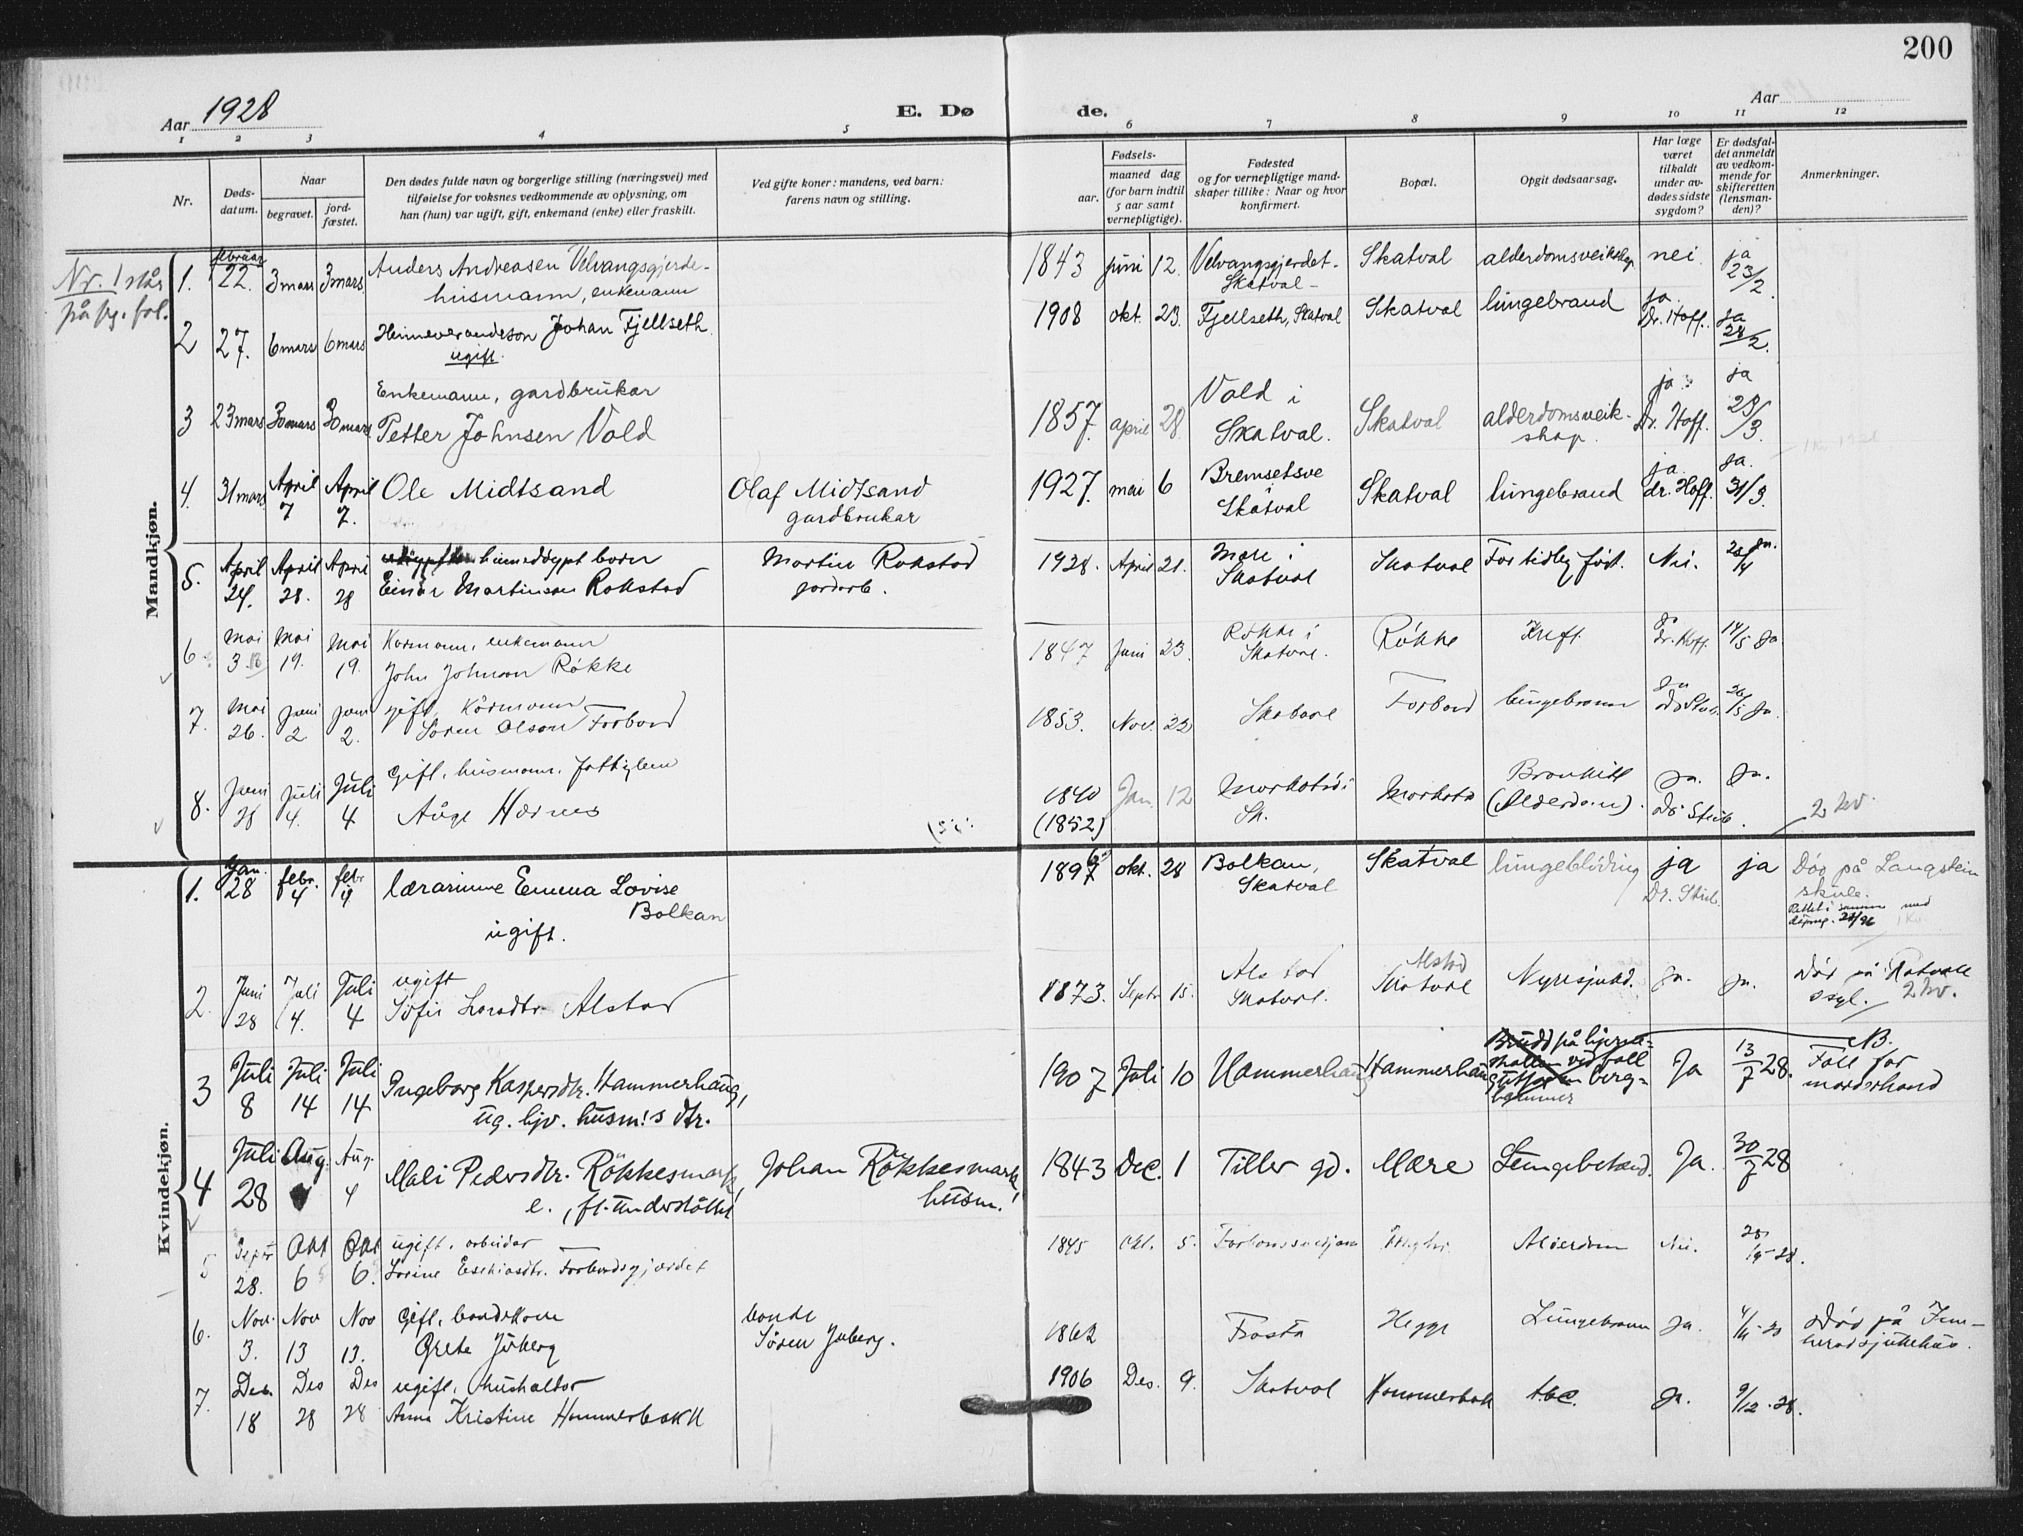 200
Aar 1928
E. Døde.
Aar
1 2 3 4 5 6 7 8 9 10 11 12
Nr.
Døds-
datum.
Naar
begravet.
jord-
fæstet.
Den dødes fulde navn og borgerlige stilling (næringsvei) med
tilføielse for voksnes vedkommende av oplysning, om
han (hun) var ugift, gift, enkemand (enke) eller fraskilt.
Ved gifte koner: mandens, ved barn:
farens navn og stilling.
Fødsels-
aar. maaned dag
(for barn indtil
5 aar samt
vernepligtige).
Fødested
og for vernepligtige mand-
skaper tillike: Naar og hvor
konfirmert.
Bopæl.
Opgit dødsaarsag.
Har læge
været
tilkaldt
under av-
dødes sidste
sygdom?
Er dødsfal-
det anmeldt
av vedkom-
mende for
skifteretten
(lensman-
den)?
Anmerkninger.
Mandkjøn.
Nr. 1 står
på pg. fol.
februar
1. 22. 3 mars 3 mars Anders Andreasen Velvangsgjerde-
husmann, enkemann
1843 juni 12. Velvangsgjerdet-
Skatval-
Skatval nei. ja
23/2.
2 27. 6 mars 6 mars Johan Fjellseth
ugift.
1908 okt. 23. Fjellseth, Skatval Skatval lungebrand ja
Dr. Hoff. ja
28/2.
Enkemann, gardbrukar
3 23 mars 30 mars 30 mars Petter Johnsen Vold
1857. april 28. Vold i
Skatval.
Skatval alderdomsveik-
skap.
ja
Dr. Hoff. ja
23/3.
4. 31 mars April 7 April 7. Ole Midtsand
Olaf Midtsand
gardbrukar
1927. mai 6
Skatval
Skatval lungebrand ja
dr. Hoff. ja.
31/3.
5. April 24. April 28. April 28 heimedøypt born
Einar Martinson Rokstad
Martin Rokstad
jordarb.
1928. April 21. Mære i
Skatval
Skatval For tidleg født. Nei.
6 Mai 3. Mai 19. Mai 19. Kårmann, enkemann
John Johnson Røkke
1847 Juni 23. Røkke i
Skatval.
Røkke Kreft ja
dr. Hoff. 14/5 ja.
7. Mai 26. Juni 2. Juni 2. gift, Kårmann
Søren Olson Forbord
1853. Nov. 22 Skatval Forbord lungebrann ja
26/5 ja.
8. Juni 28 Juli 4. Juli 4 Gift, husmann,
1840
(1852)
Jan. 12
Sk.
Bronkitt
(Alderdom).
ja.
Dr Stub. ja.
2 kv.
Kvindekjøn.
1. Jan. 28 febr. 4 febr. 4 lærarinne Emma Lovise
Bolkan
ugift.
1897 okt. 28 Bolkan,
Skatval
Skatval lungeblóding ja
Dr. Stub.
ja Død på Langstein
skule.
2. Juni 28 Juli 4. Juli 4 ugift
Alstad
1873. Septr 15. Alstad
Skatval.
Alstad
Skatval Nyresjukd. ja. ja.
2 kv.
3 Juli 8 Juli 14 Juli 14 Ingeborg Kaspersdtr. Hammerhaug,
ug. hjv. husm.s dtr.
1907 Juli 10 Hammerhaug Hammerhaug
Ja 13/7 28.
NB.
Fall for
morderhand
4 Juli 28 Aug. Aug. 4 Mali Pedersdtr. Røkkesmark,
e., ft. understøttet
Johan Røkkesmark,
husm.
1843 Dec. 1 Tiller gd. Mære Lungebetænd. Ja. 30/7 28
5 Septr 28. Okt 6 Okt 6. ugift, arbeidar
1845 okt. 5. Alderdom Nei.
6. Nov. 3. Nov 13 Nov 13. Gift, bondekone
Grete Juberg
bonde
Søren Juberg.
1862 Frosta Hegge Lungebrann ja. Død på Inn-
herad sjukehus.
7. Des. 18 Des 28 Des 28 ugift, hushaldar
Anna Kristine Hammerbakk
1906 Des. 9. Skatval Hammerbakk tbc. ja. 9/12 . 28.